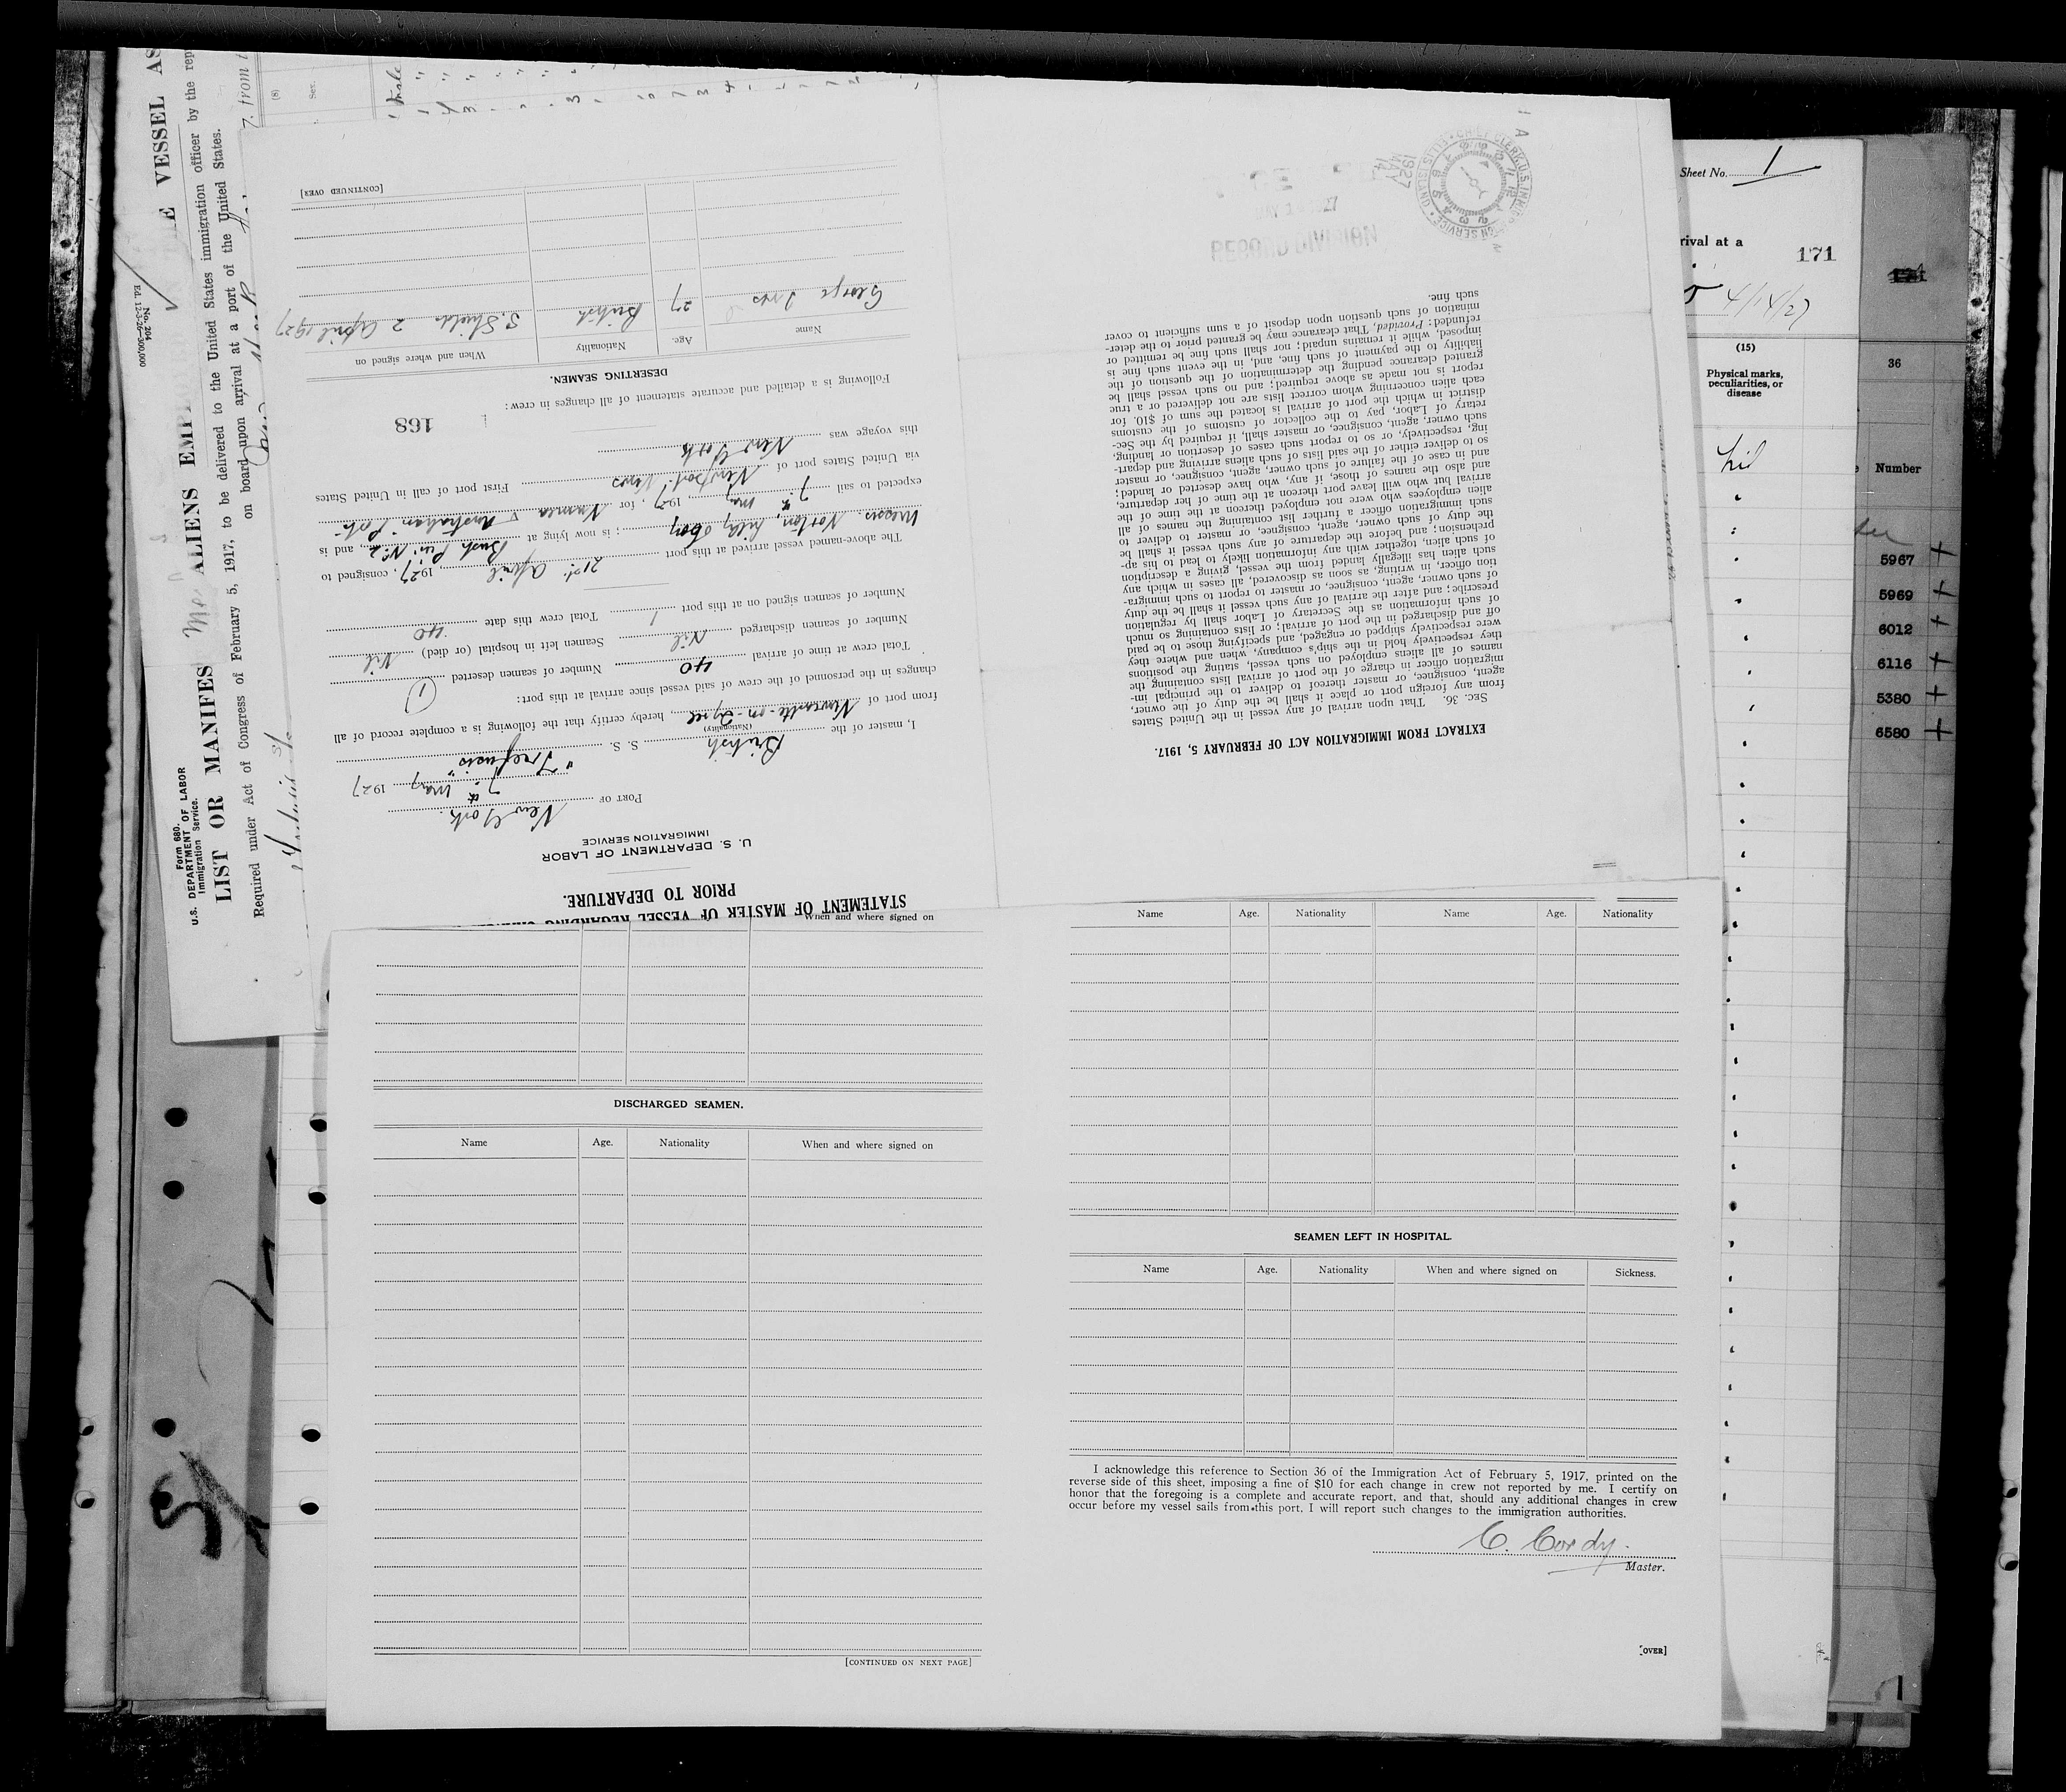 Form 680.
U.S. DEPARTMENT OF LABOR
Immigration Service.
No. 204
Ed. 12-3-26—300,000
LIST OR MANIFES ALIENS EMP VESSEL AS
Required under Act of Congress of February 5, 1917, to be delivered to the United States immigration officer by the rep
on board upon arrival at a port of the United States.
(8)
Sex.
STATEMENT OF MASTER OF VESSEL REGARDING
PRIOR TO DEPARTURE.
U. S. DEPARTMENT OF LABOR
IMMIGRATION SERVICE
PORT OF New York.
7th May 1927
I, master of the British S. S. "Trefusis"
(Nationality)
from port of Newcastle-on-Tyne, hereby certify that the following is a complete record of all
changes in the personnel of the crew of said vessel since arrival at this port:
Total crew at time of arrival 40 Number of seamen deserted 1
Number of seamen discharged Nil Seamen left in hospital (or died) Nil
Number of seamen signed on at this port 1 Total crew this date 40
The above-named vessel arrived at this port 21st April 1927, consigned to
Messrs. Norton, Lilly & Coy; is now lying at Bush Pier No 2, and is
expected to sail 7th May 1927, for Numea & Australian Ports
via United States port of Newport News First port of call in United States
this voyage was New York
168
Following is a detailed and accurate statement of all changes in crew:
DESERTING SEAMEN.
Name Age. Nationality When and where signed on
George Ives 27 British S. Shields 2 April 1927
[CONTINUED OVER]
EXTRACT FROM IMMIGRATION ACT OF FEBRUARY 5, 1917.
SEC. 36. That upon arrival of any vessel in the United States
from any foreign port or place it shall be the duty of the owner,
agent, consignee, or master thereof to deliver to the principal im-
migration officer in charge of the port of arrival lists containing the
names of all aliens employed on such vessel, stating the positions
they respectively hold in the ship's company, when and where they
were respectively shipped or engaged, and specifying those to be paid
off and discharged in the port of arrival; or lists containing so much
of such information as the Secretary of Labor shall by regulation
prescribe; and after the arrival of any such vessel it shall be the duty
of such owner, agent, consignee, or master to report to such immigra-
tion officer, in writing, as soon as discovered, all cases in which any
such alien has illegally landed from the vessel, giving a description
of such alien, together with any information likely to lead to his ap-
prehension; and before the departure of any such vessel it shall be
the duty of such owner, agent, consignee, or master to deliver to
such immigration officer a further list containing the names of all
alien employees who were not employed thereon at the time of the
arrival but who will leave port thereon at the time of her departure,
and also the names of those, if any, who have deserted or landed;
and in case of the failure of such owner, agent, consignee, or master
so to deliver either of the said lists of such aliens arriving and depart-
ing, respectively, or so to report such cases of desertion or landing,
such owner, agent, consignee, or master shall, if required by the Sec-
retary of Labor, pay to the collector of customs of the customs
district in which the port of arrival is located the sum of $10, for
each alien concerning whom correct lists are not delivered or a true
report is not made as above required; and no such vessel shall be
granted clearance pending the determination of the question of the
liability to the payment of such fine, and, in the event such fine is
imposed, while it remains unpaid; nor shall such fine be remitted or
refunded: Provided, That clearance may be granted prior to the deter-
mination of such question upon deposit of a sum sufficient to cover
such fine.
RECORD DIVISION
1927 MAY 14
Sheet No. 1
rival at a
171
4/14/27
(15)
Physical marks,
peculiarities, or
disease
Nil
36
Number
5967
5969
6012
6116
5380
6580
When and where signed on
DISCHARGED SEAMEN.
Name Age. Nationality When and where signed on
[CONTINUED ON NEXT PAGE]
Name Age. Nationality Name Age. Nationality
SEAMEN LEFT IN HOSPITAL.
Name Age. Nationality When and where signed on Sickness.
I acknowledge this reference to Section 36 of the Immigration Act of February 5, 1917, printed on the
reverse side of this sheet, imposing a fine of $10 for each change in crew not reported by me. I certify on
honor that the foregoing is a complete and accurate report, and that, should any additional changes in crew
occur before my vessel sails from this port, I will report such changes to the immigration authorities.
C. Cordy.
Master.
[OVER]
1